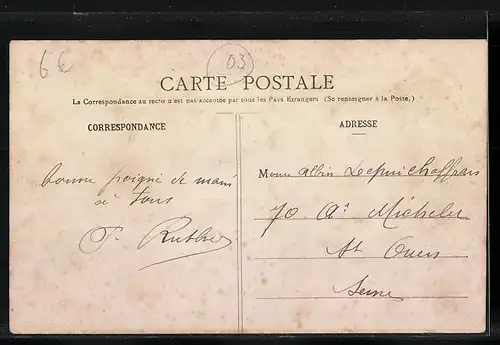 6€
03
CARTE POSTALE
La Correspondance au recto n'est pas acceptée par tous les Pays Etrangers (Se renseigner à la Poste.)
CORRESPONDANCE
ADRESSE
bonne poigné de main
à tous
Monsr Albin
70 Michelet
St Ouen
Seine